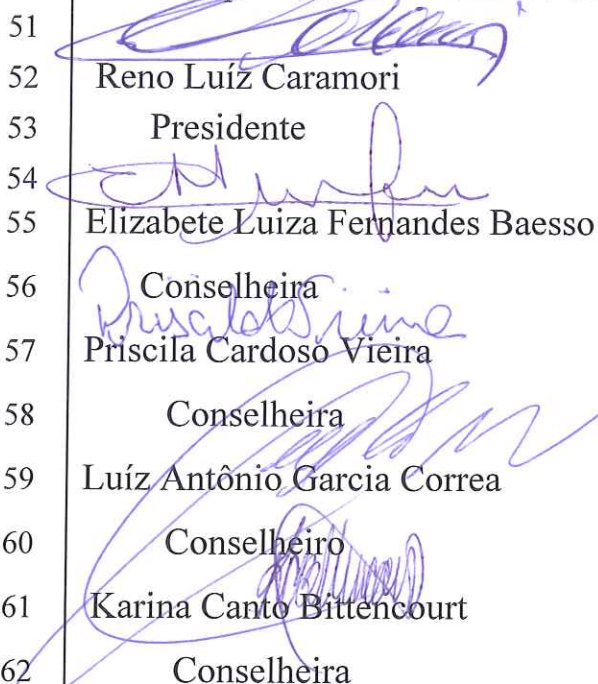 51
52 Reno Luíz Caramori
53 Presidente
54
55 Elizabete Luiza Fernandes Baesso
56 Conselheira
57 Priscila Cardoso Vieira
58 Conselheira
59 Luíz Antônio Garcia Correa
60 Conselheiro
61 Karina Canto Bittencourt
62 Conselheira